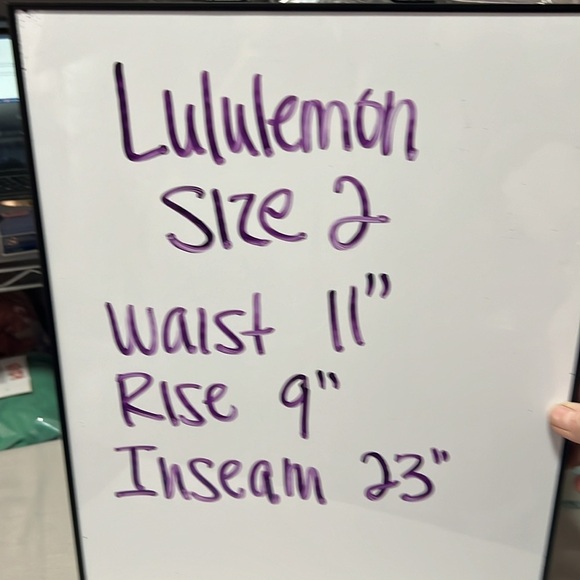 Lululemon
Size 2
Waist 11"
Rise 9"
Inseam 23"